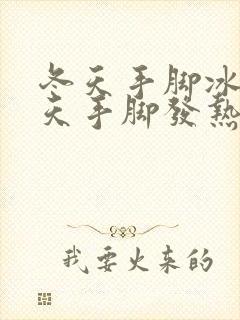 冬天手脚冰
天手脚發熱
我要火来的